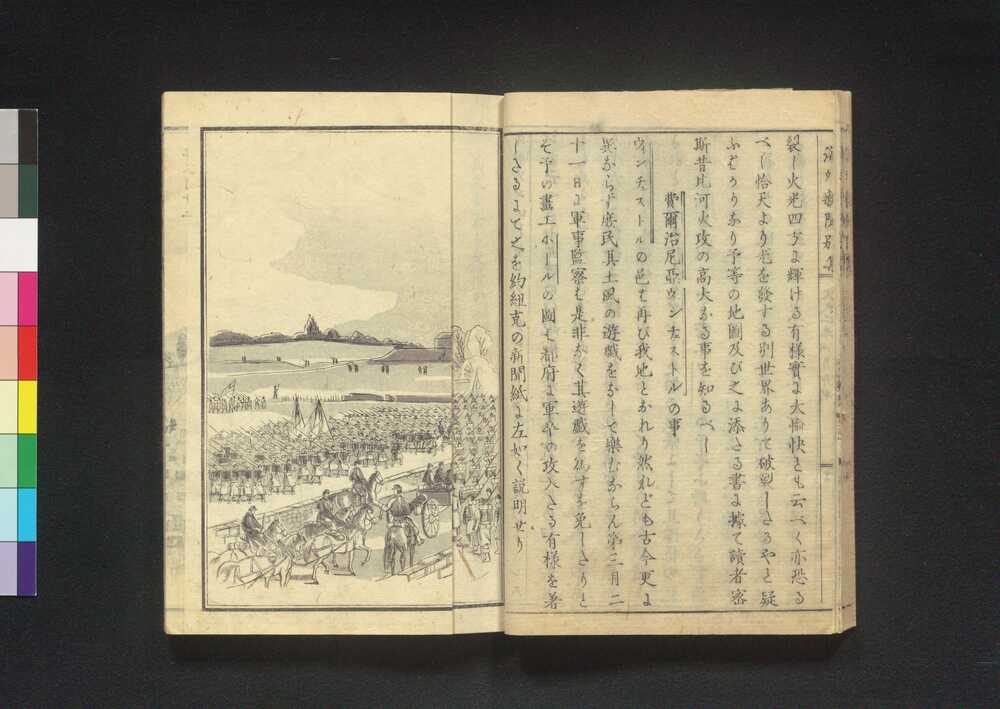 裂し火光四方よ輝ける有様實よ大愉快とも云べく亦恐る
べし恰天より光を發する別世界ありて破裂しさるやと疑
ふむうりなり予等の地圖及び之よ添さる書よ據て讀者密
斯昔比河火攻の高大なる事を知るべし
費爾治尼亞ウンチェストルの事
ウンチェストルの邑も再び我地とかれり然れども古今更よ
異ならず庶民其土風の遊戲をなして樂むならん第三月二
十一日よ軍事監察も是非なく其遊戲を為すを免しさりと
そ予の畫工ホールの圖も都府よ軍卒の攻入さる有様を著
しさるよて之を約紐克の新聞紙よ左如く説明せり